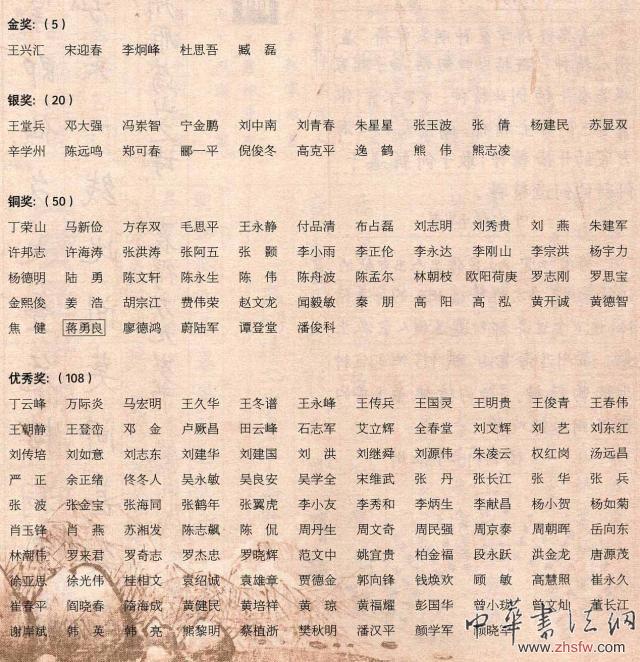 金奖：（5）
王兴汇 宋迎春 李炯峰 杜思吾 臧 磊
银奖：（20）
王堂兵 邓大强 冯崇智 宁金鹏 刘中南 刘青春 朱星星 张玉波 张 倩 杨建民 苏显双
辛学州 陈远鸣 郑可春 郦一平 倪俊冬 高克平 逸 鹤 熊 伟 熊志凌
铜奖：（50）
丁荣山 马新俭 方存双 毛思平 王永静 付品清 布占磊 刘志明 刘秀贵 刘 燕 朱建军
许邦志 许海涛 张洪涛 张阿五 张 颢 李小雨 李正伦 李永达 李刚山 李宗洪 杨宇力
杨德明 陆 勇 陈文轩 陈永生 陈 伟 陈舟波 陈孟尔 林朝枝 欧阳荷庚 罗志刚 罗思宝
金熙俊 姜 浩 胡宗江 费伟荣 赵文龙 闻毅敏 秦 朋 高 阳 高 泓 黄开诚 黄德智
焦 健 蒋勇良 廖德鸿 蔚陆军 谭登堂 潘俊科
优秀奖：（108）
丁云峰 万际炎 马宏明 王久华 王冬谱 王永峰 王传兵 王国灵 王明贵 王俊青 王春伟
王朝静 王登峦 邓 金 卢厥昌 田云峰 石志军 艾立辉 全春堂 刘文辉 刘 艺 刘东红
刘传培 刘如意 刘志东 刘建华 刘建国 刘 洪 刘继舜 刘源伟 朱凌云 权红岗 汤远昌
严 正 余正绪 佟冬人 吴永敏 吴良安 吴学全 宋维武 张 丹 张长江 张 华 张 兵
张 波 张金宝 张海同 张鹤年 张翼虎 李小友 李秀和 李炳生 李献昌 杨小贺 杨如菊
肖玉锋 肖 燕 苏湘发 陈志飙 陈 侃 周丹生 周文奇 周民强 周京泰 周朝晖 岳向东
林潮伟 罗来君 罗奇志 罗杰忠 罗晓辉 范文中 姚宜贵 柏金福 段永跃 洪金龙 唐源茂
徐亚思 徐光伟 桂相文 袁绍诚 袁雄章 贾德金 郭向锋 钱焕欢 顾 敏 高慧照 崔永久
崔春平 阎晓春 隋海成 黄健民 黄培祥 黄 琼 黄福耀 彭国华 曾小珑 曾文灿 董长江
谢岸斌 韩 英 韩 亮 熊黎明 蔡植浙 樊秋明 潘汉平 颜学军 顾晓军
中华书法网
www.zhsfw.com